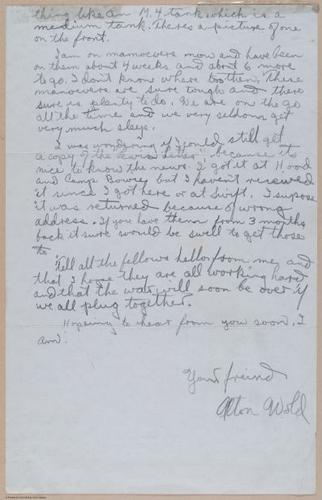 thing like an M.4 tank which is a
medium tank. Theres a picture of one
on the front.
I am on manoevers now and have been
on them about 4 weeks and about 6 more
to go. I don't know where to then, these
manoevers are sure tough and there
sure is plenty to do. We are on the go
all the time and we very seldom get
very much sleep.
I was wondering if I could still get
a copy of the "News Letter" because its
nice to know the news. I got it at Hood
and Camp Bowie but I haven't received
it since I got here or at Swift. I supose
it was returned because of wrong
address. If you have them from 3 months
back it sure would be swell to get those
to.
Tell all the fellows hello from me, and
that I hope they are all working hard
and that the war will soon be over if
we all plug together.
Hopeing to hear from you soon. I
am:
Your freind
Alton Wold